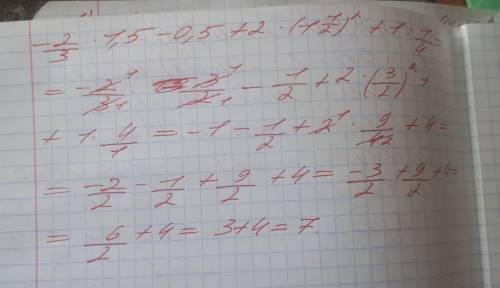 -2/3 · 1,5 - 0,5 + 2 · (-1 1/2)² + 1 : 1/4 =
= -2¹/3₁ · 3¹/2₁ - 1/2 + 2 · (3/2)² +
+ 1 · 4/1 = -1 - 1/2 + 2¹ · 9/4₂ + 4 =
= -2/2 - 1/2 + 9/2 + 4 = -3/2 + 9/2 + 4 =
= 6/2 + 4 = 3 + 4 = 7.